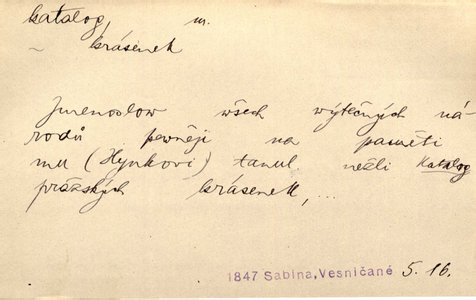 katalog, m.
~ krásenek
Jmenoslow wšech wýtečných ná-
rodů pewněji na paměti
mu (Hynkovi) tanul nežli katalog
pražských krásenek,...
1847 Sabina, Vesničané 5.16.